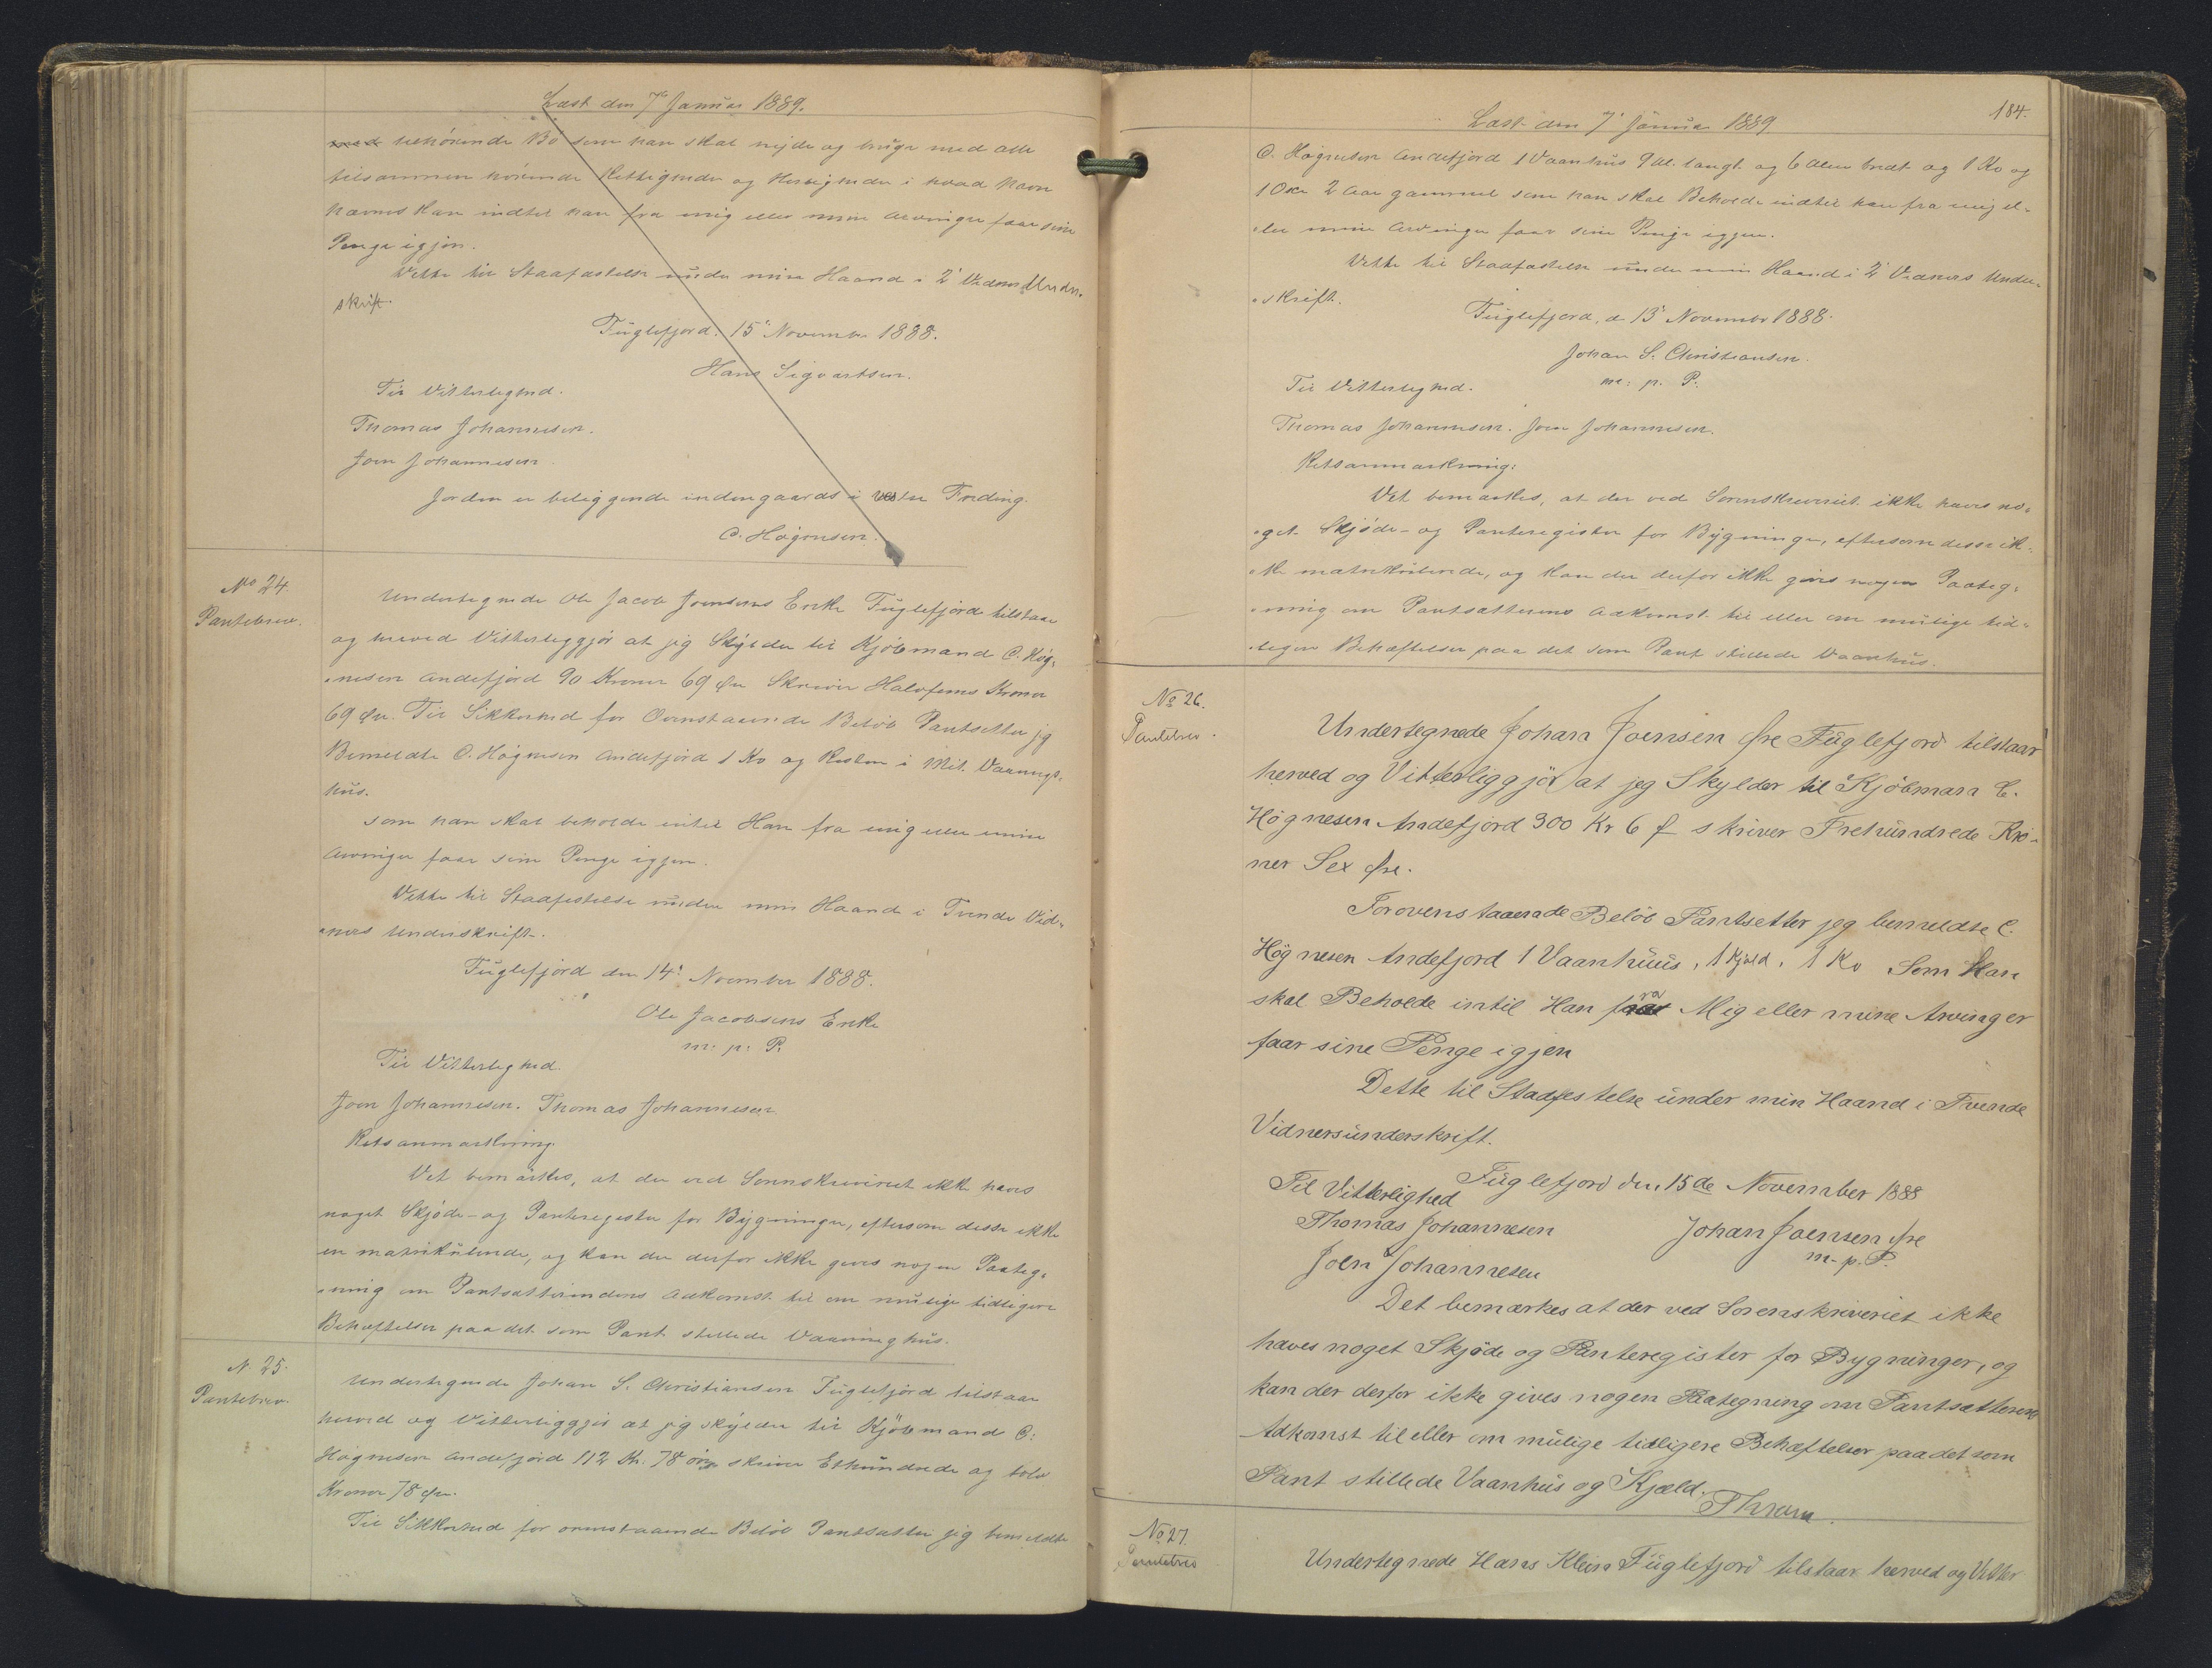 Læst den 7de Januar 1889.
med tilhörende Bö som han skal nyde og bruge med alle
tilsammen hörende Rettigheder og Herligheder i hvad Navn
nævnes kan indtil han fra mig eller mine Arvinger faar sine
Penge igjen.
Dette til Staafæstelse under min Haand i 2de Vidners Under-
skrift.
Fuglefjord. 15' November 1888.
Hans Sigvartsen.
Til Vitterlighed.
Thomas Johannesen.
Joen Johannesen.
Jorden er beliggende indengaards i Fording.
C. Högnesen.
No 24.
Pantebrev.
Undertegnede Ole Jacob Joensens Enke Fuglefjord tilstaar
og herved Vitterliggjör at jeg Skylder til Kjöbmand C. Hög-
nesen Andefjord 90 Kroner 69 Øre Skriver Halvfems Kroner
69 Øre. Til Sikkerhed for Ovenstaaende Belöb Pantsetter jeg
Bemeldte C. Högnesen Andefjord 1 Ko og Resten i Mit Vaanings-
hus.
som han skal beholde intil Han fra mig eller mine
Arvinger faar sine Penge igjen.
Dette til Staafestelse under min Haand i Tvende Vid-
ners Underskrift.
Fuglefjord den 14' November 1888.
Ole Jacobsens Enke
m: p: P.
Til Vitterlighed.
Joen Johannesen. Thomas Johannesen
Retsanmærkning.
Det bemærkes, at der ved Sorenskriveriet ikke haves
noget Skjöde- og Panteregister for Bygninger, eftersom disse ikke
er matrikulerede, og kan der derfor ikke gives nogen Paateg-
ning om Pantsætterindens Adkomst til om mulige tidligere
Behæftelser paa det som Pant stillede Vaaninghus.
N. 25.
Pantebrev.
Undertegnede Johan S. Christiansen Fuglefjord tilstaar
herved og Vitterliggjör at jeg skylder til Kjöbmand C.
Högnesen Andefjord 112 Kr. 78 öre skriver Ethundrede og tolv
Kroner 78 Øre.
Til Sikkerhed for ovenstaaende Belöb Pantsætter jeg bemeldte
184.
Læst den 7' Januar 1889.
C. Högnesen Andefjord 1 Vaanhus 9 Al. langt og 6 Alen bredt og 1 Ko og
1 Oxe 2 Aar gammel som han skal Beholde indtil han fra mig el-
ler mine Arvinger faar sine Penge igjen.
Dette til Staafæstelse under min Haand i 2' Vidners Under-
skrift.
Fuglefjord, d 13' November 1888.
Johan S. Christiansen.
m: p. P.
Til Vitterlighed.
Thomas Johannesen. Joen Johannesen.
Retsanmærkning:
Det bemærkes, at der ved Sorenskriveriet ikke haves no-
get Skjöde- og Panteregister for Bygninger, eftersom disse ik-
ke matrikulerede, og kan der derfor ikke gives nogen Paateg-
ning om Pantsætterens Adkomst til eller om mulige tid-
ligere Behæftelser paa det som Pant stillede Vaanhus.
No 26.
Pantebrev.
Undertegnede Johan Joensen Øre Fuglefjord tilstaar
herved og Vitterliggjör at jeg Skylder til Kjöbman C.
Högnesen Andefjord 300 Kr 6 Ø skriver Trehundrede Kro-
ner Sex Øre.
Forovenstaaende Belöb Pantsetter jeg bemeldte C.
Högnesen Andefjord 1 Vaanhuus, 1 Kjæld, 1 Ko Som Han
skal Beholde intil Han fra Mig eller mine Arvinger
faar sine Penge igjen
Dette til Stadfestelse under min Haand i Tvende
Vidnersunderskrift.
Fuglefjord den 15de November 1888
Til Vitterlighed
Thomas Johannesen
Johan Joensen Øre
m- p. P.
Joen Johannesen
Det bemærkes at der ved Sorenskriveriet ikke
haves noget Skjöde og Panteregister for Bygninger, og
kan der derfor ikke gives nogen Paategning om Pantsætterens
Adkomst til eller om mulige tidligere Behæftelser paa det som
Pant stillede Vaanhus og Kjæld.
No 27.
Pantebrev
Undertegnede Hans Klein Fuglefjord tilstaar herved og Vitter